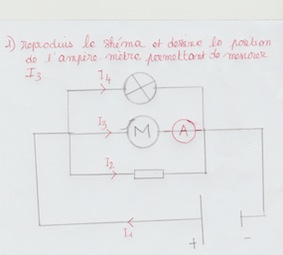 2) reproduis le shéma et dessine la position
de l'ampère mètre permettant de mesurer
I3
I4
I3
M
A
I2
I1
+
-